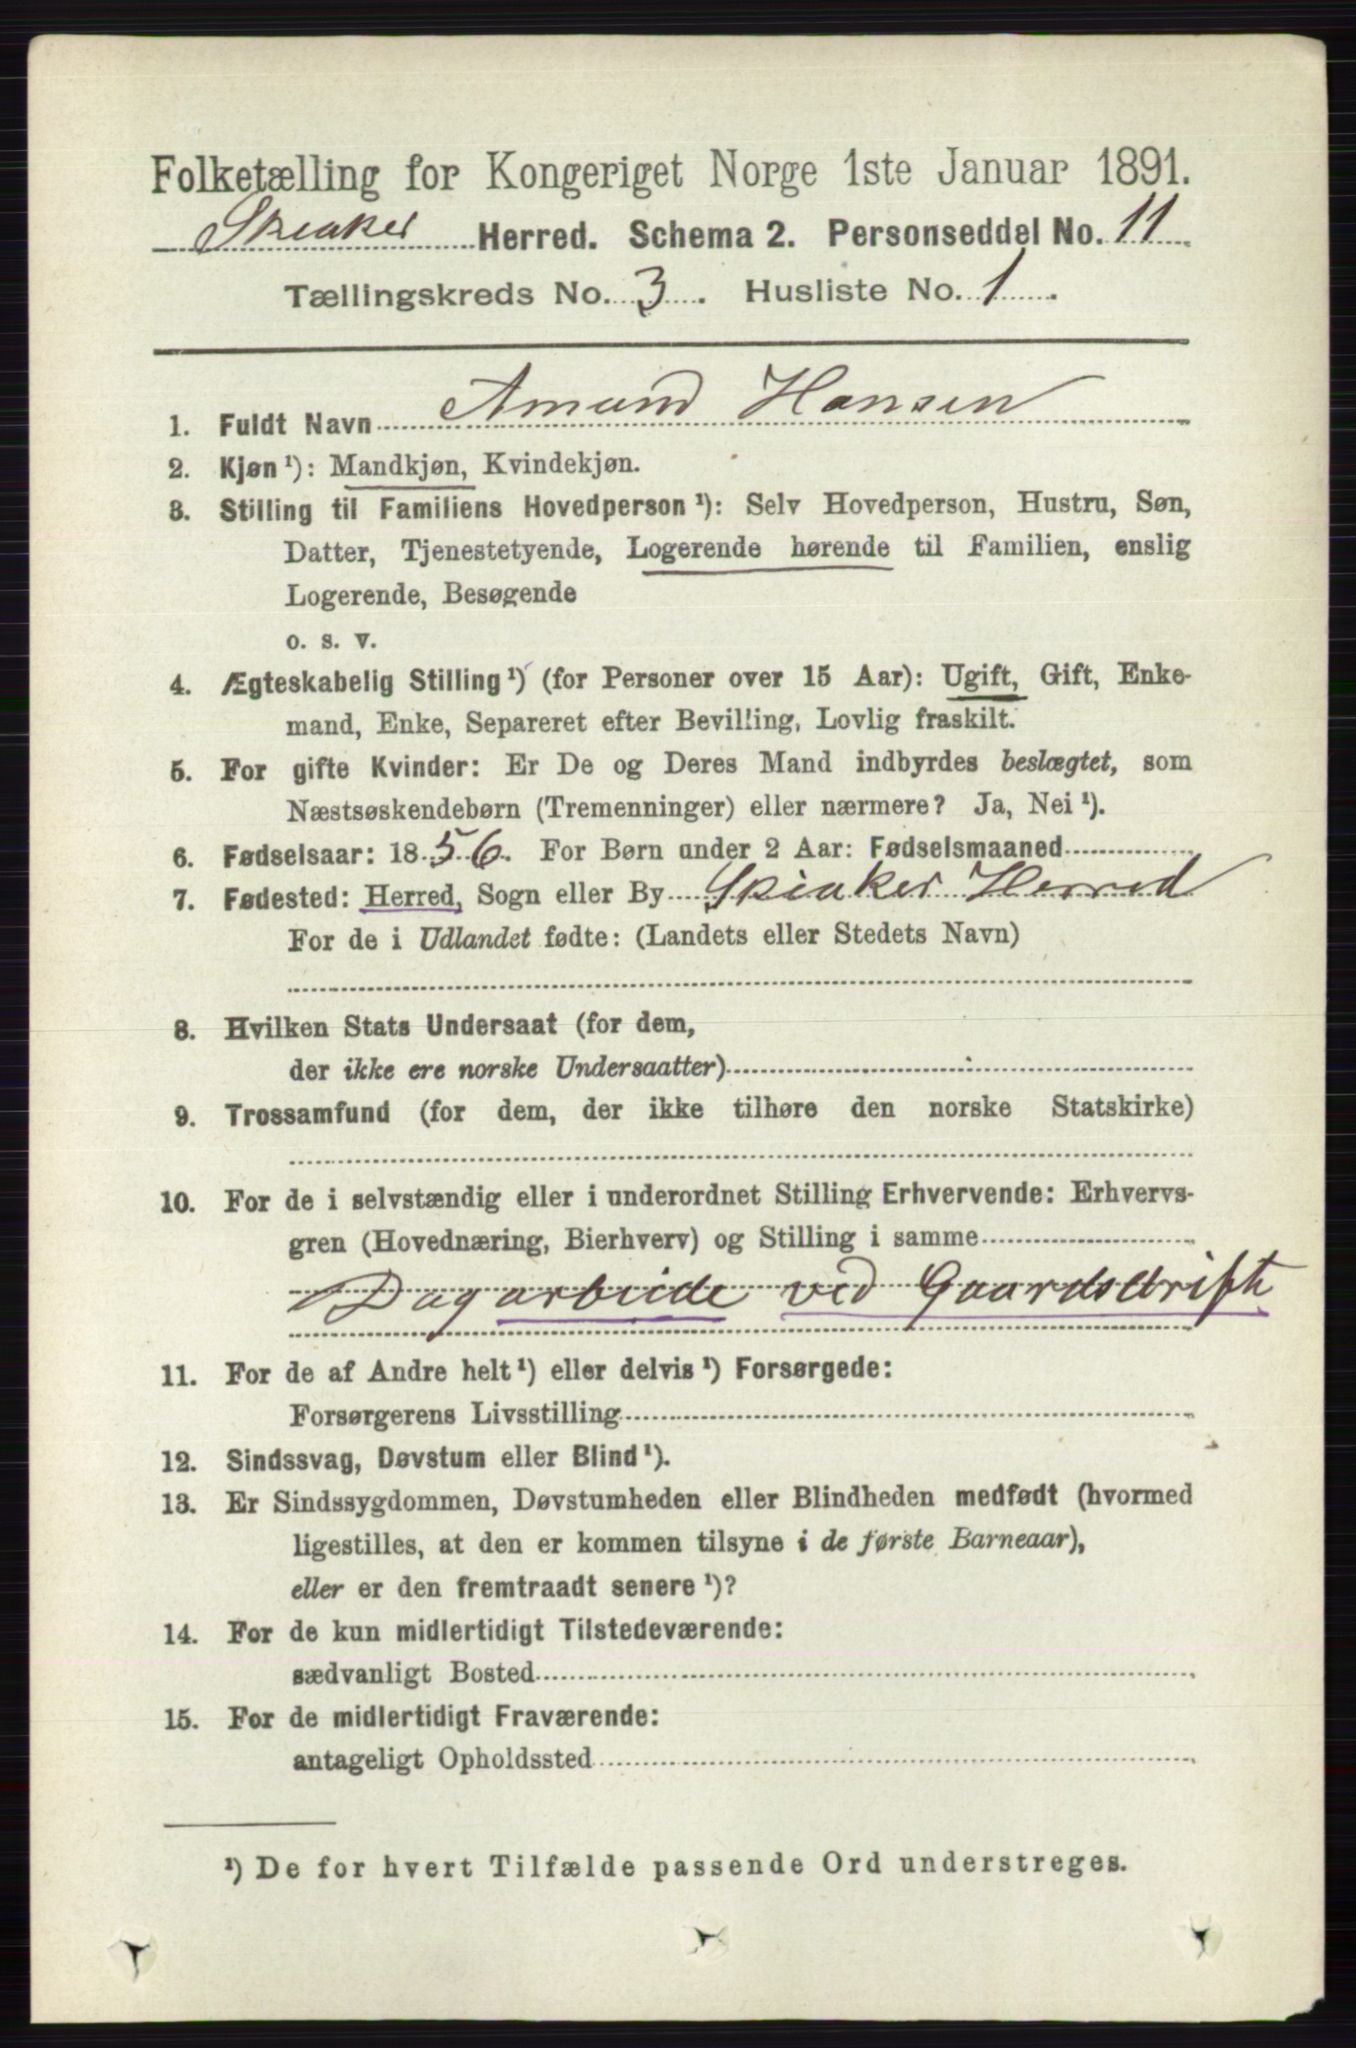 Folketælling for Kongeriget Norge 1ste Januar 1891.
Skeaker Herred. Schema 2. Personseddel No. 11
Tællingskreds No. 3. Husliste No. 1.
1. Fuldt Navn Amund Hansen
2. Kjøn ¹): Mandkjøn, Kvindekjøn.
3. Stilling til Familiens Hovedperson ¹): Selv Hovedperson, Hustru, Søn,
Datter, Tjenestetyende, Logerende hørende til Familien, enslig
Logerende, Besøgende
o. s. v.
4. Ægteskabelig Stilling ¹) (for Personer over 15 Aar): Ugift, Gift, Enke-
mand, Enke, Separeret efter Bevilling, Lovlig fraskilt.
5. For gifte Kvinder: Er De og Deres Mand indbyrdes beslægtet, som
Næstsøskendebørn (Tremenninger) eller nærmere? Ja, Nei ¹).
6. Fødselsaar: 1856. For Børn under 2 Aar: Fødselsmaaned
7. Fødested: Herred, Sogn eller By Skiaker Herred
For de i Udlandet fødte: (Landets eller Stedets Navn)
8. Hvilken Stats Undersaat (for dem,
der ikke ere norske Undersaatter)
9. Trossamfund (for dem, der ikke tilhøre den norske Statskirke)
10. For de i selvstændig eller i underordnet Stilling Erhvervende: Erhvervs-
gren (Hovednæring, Bierhverv) og Stilling i samme
Dagarbeide ved Gaardsdrift
11. For de af Andre helt ¹) eller delvis ¹) Forsørgede:
Forsørgerens Livsstilling
12. Sindssvag, Døvstum eller Blind ¹).
13. Er Sindssygdommen, Døvstumheden eller Blindheden medfødt (hvormed
ligestilles, at den er kommen tilsyne i de første Barneaar),
eller er den fremtraadt senere ¹)?
14. For de kun midlertidigt Tilstedeværende:
sædvanligt Bosted
15. For de midlertidigt Fraværende:
antageligt Opholdssted
¹) De for hvert Tilfælde passende Ord understreges.